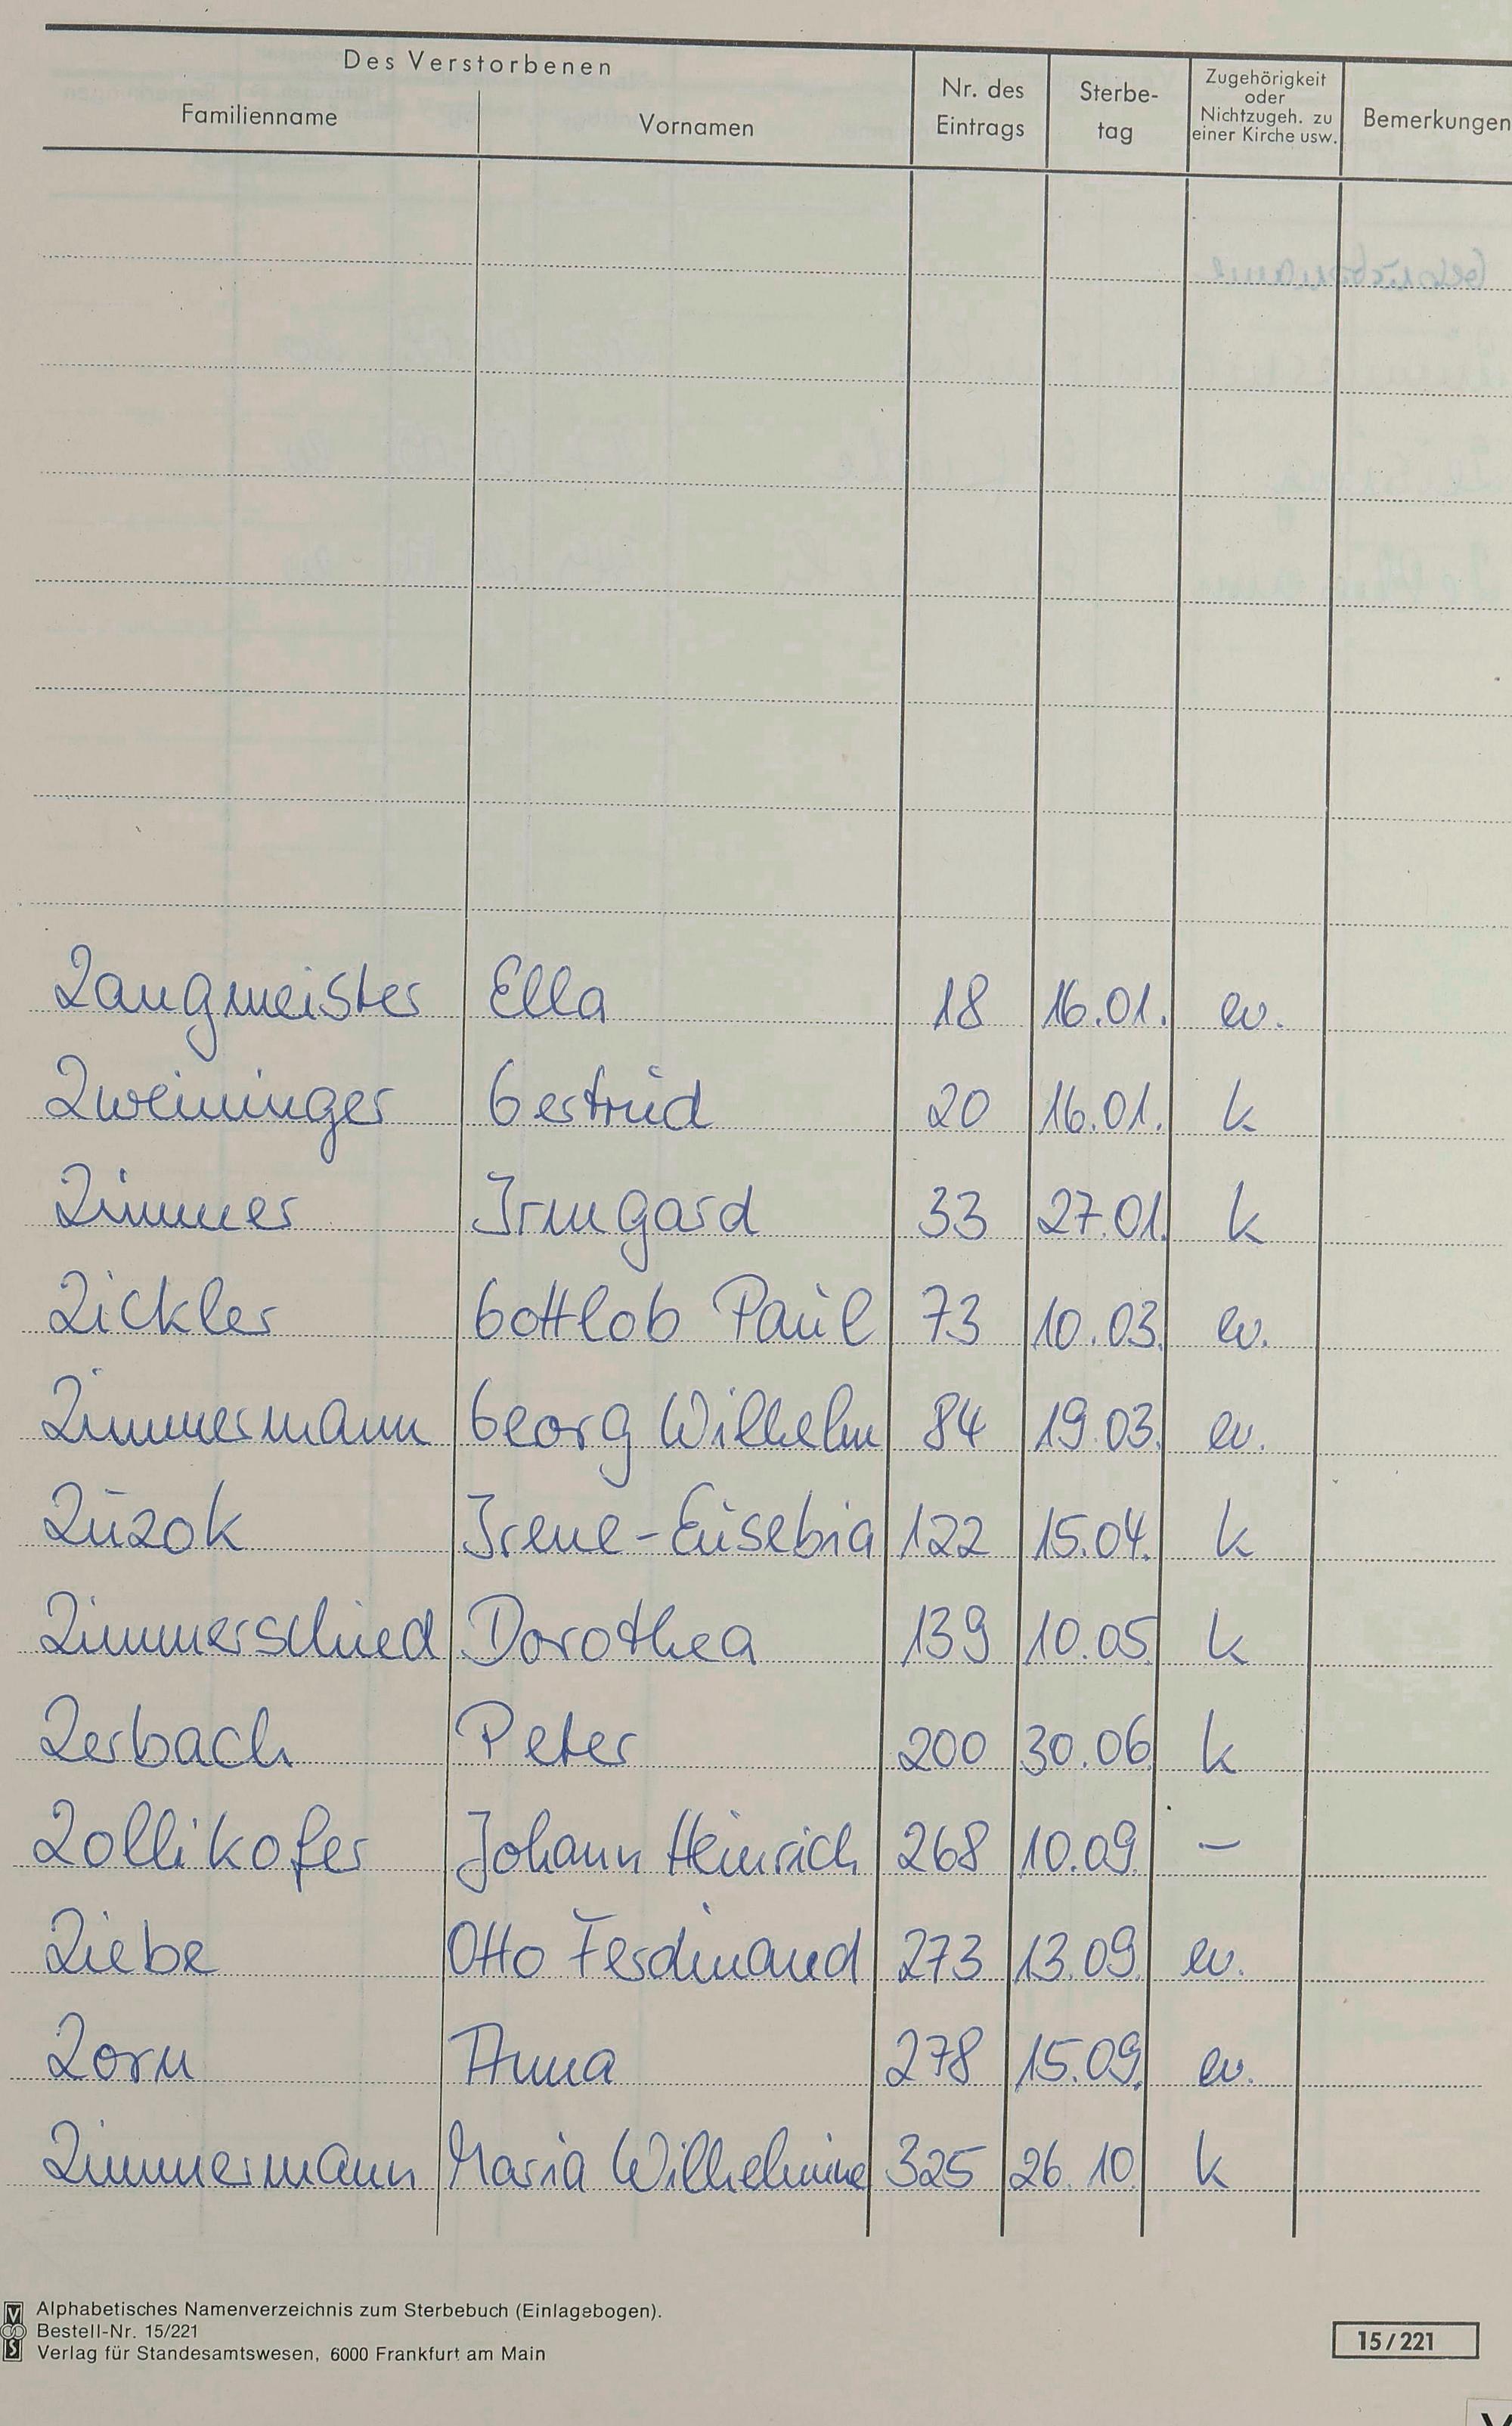 Des Verstorbenen
Familienname Vornamen Nr. des Eintrags Sterbe-tag Zugehörigkeit oder Nichtzugeh. zu einer Kirche usw. Bemerkungen
Zaugmeister Ella 18 16.01. ev.
Zweininger Gertrud 20 16.01. k
Zimmer Irmgard 33 27.01. k
Zickler Gottlob Paul 73 10.03. ev.
Zimmermann Georg Wilhelm 84 19.03. ev.
Zuzok Irene-Eusebia 122 15.04. k
Zimmerschied Dorothea 139 10.05. k
Zerbach Peter 200 30.06. k
Zollikofer Johann Heinrich 268 10.09. –
Ziebe Otto Ferdinand 273 13.09. ev.
Zorn Anna 278 15.09. ev.
Zimmermann Maria Wilhelmine 325 26.10. k
Alphabetisches Namenverzeichnis zum Sterbebuch (Einlagebogen).
Bestell-Nr. 15/221
Verlag für Standesamtswesen, 6000 Frankfurt am Main
15/221